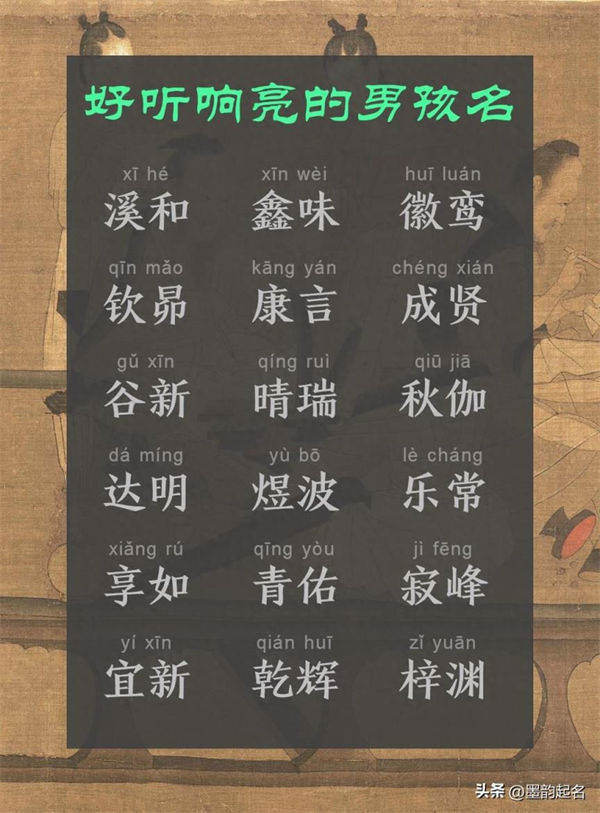 好听响亮的男孩名
xī hé xīn wèi huī luán
溪和 鑫味 徽鸾
qīn mǎo kāng yán chéng xián
钦昴 康言 成贤
gǔ xīn qíng ruì qiū jiā
谷新 晴瑞 秋伽
dá míng yù bō lè cháng
达明 煜波 乐常
xiǎng rú qīng yòu jì fēng
享如 青佑 寂峰
yí xīn qián huī zǐ yuān
宜新 乾辉 梓渊
头条 @墨韵起名